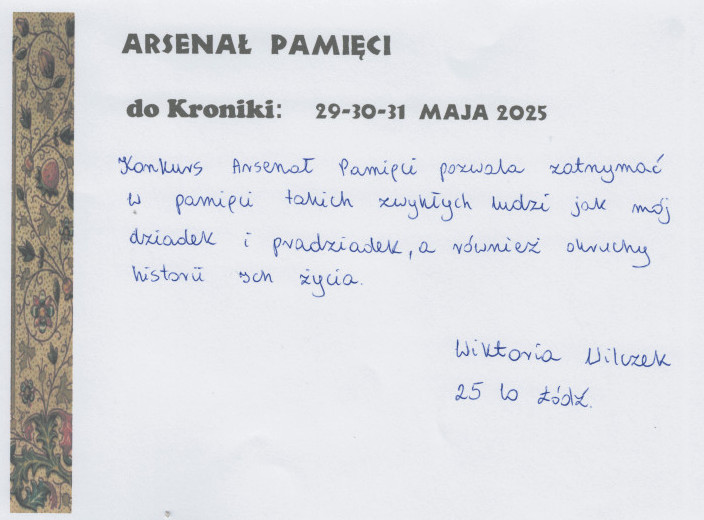 ARSENAŁ PAMIĘCI
do Kroniki: 29-30-31 MAJA 2025
Konkurs Arsenał Pamięci pozwala zatrzymać
w pamięci takich zwykłych ludzi jak mój
dziadek i pradziadek, a również okruchy
historii ich życia.
Wiktoria Wilczek
25 LO Łódź.